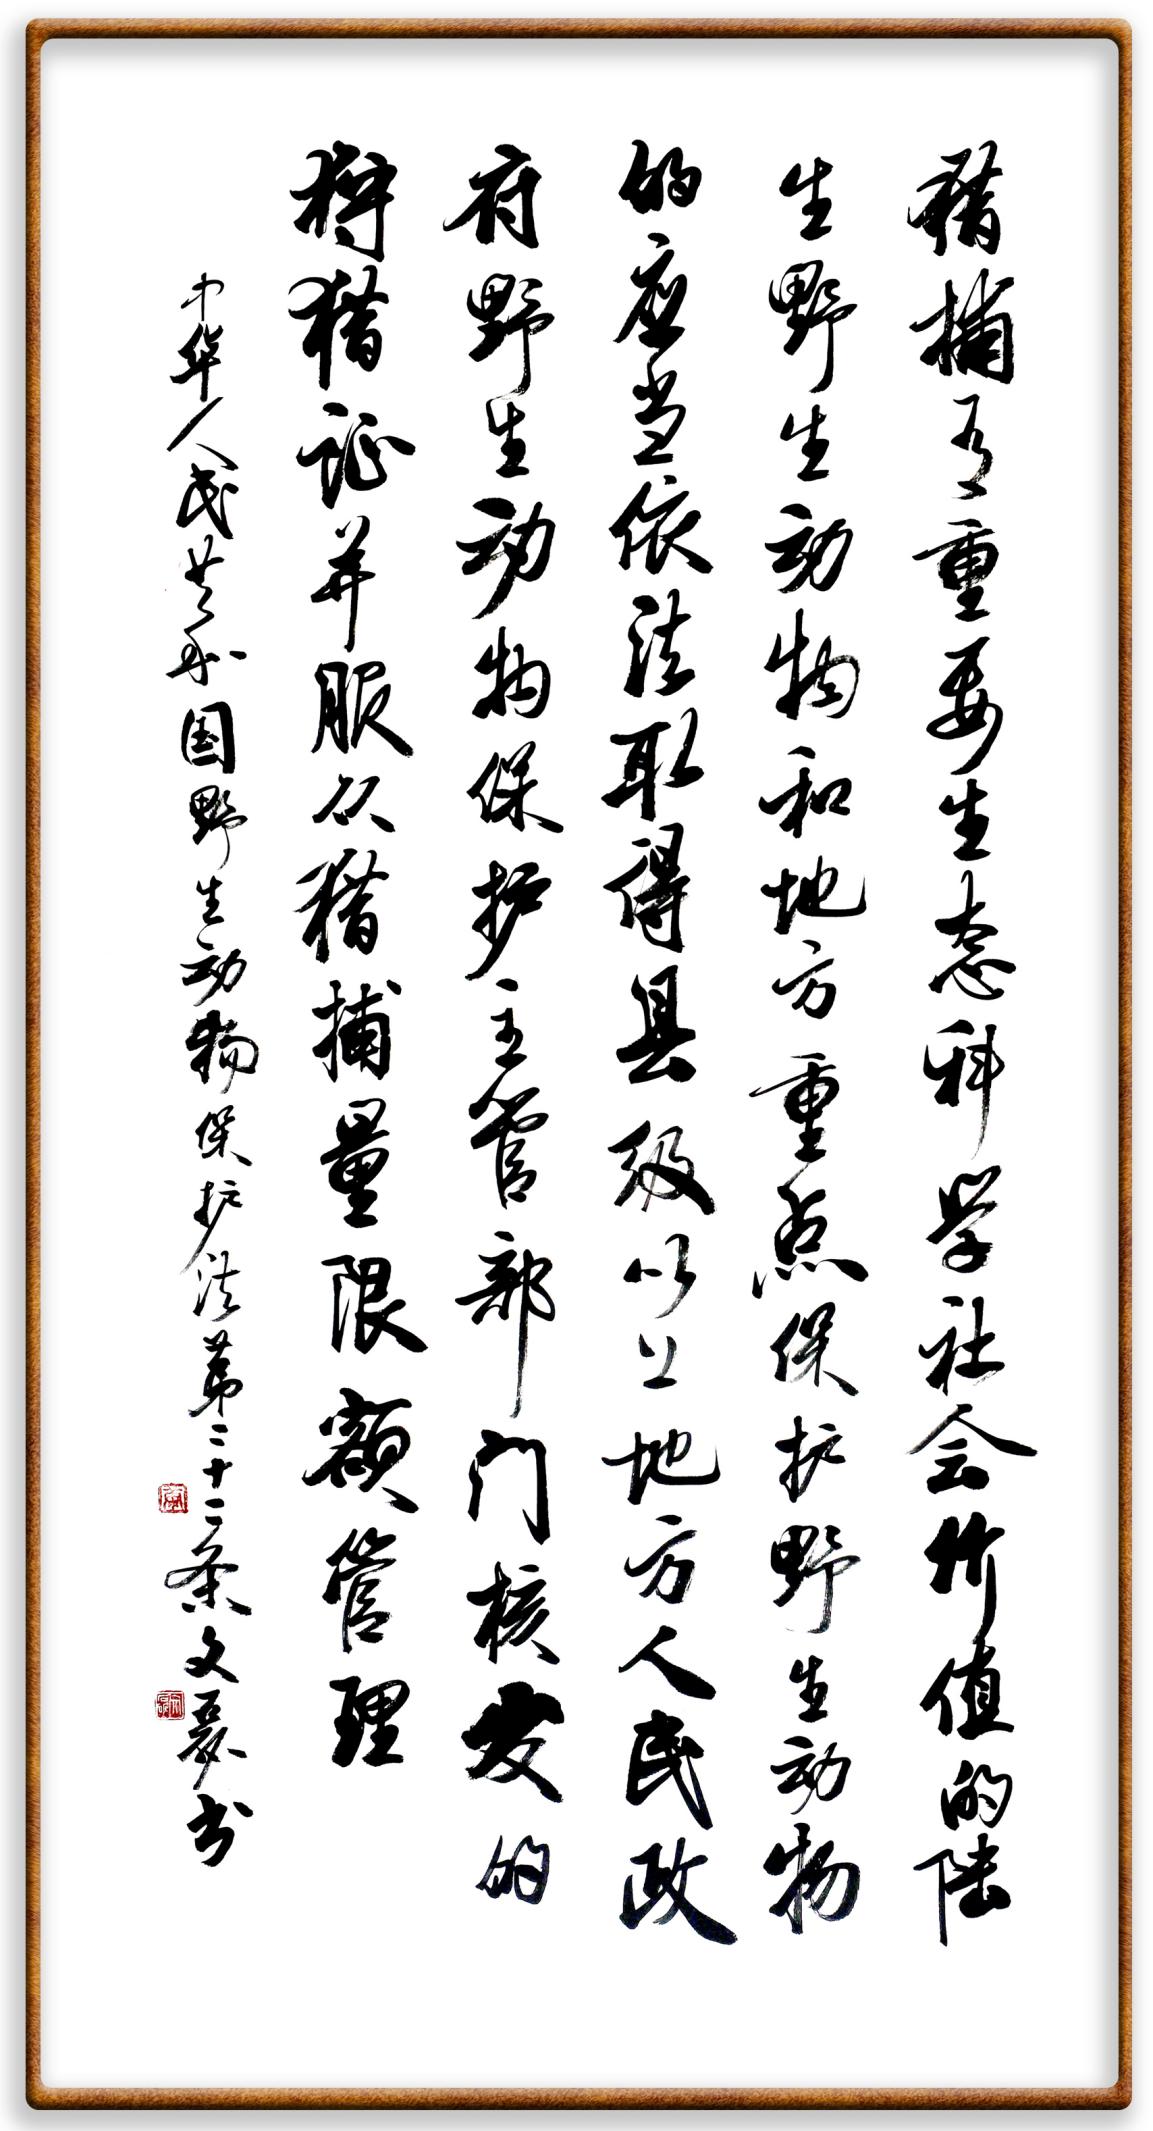 猎捕有重要生态科学社会价值的陆
生野生动物和地方重点保护野生动物
的应当依法取得县级以上地方人民政
府野生动物保护主管部门核发的
狩猎证并服从猎捕量限额管理
中华人民共和国野生动物保护法第二十二条文磊书